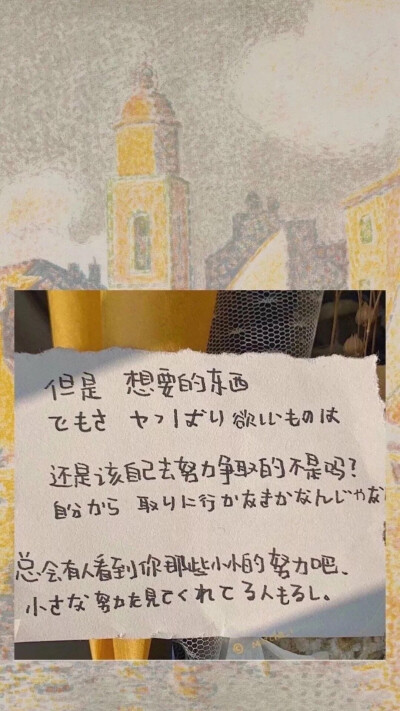 但是 想要的东西
でもさ やっぱり欲しいものは
还是该自己去努力争取的不是吗?
自分から 取りに行かなきゃなんじゃな
总会有人看到你那些小小的努力吧、
小さな努力を見てくれてる人もるし。